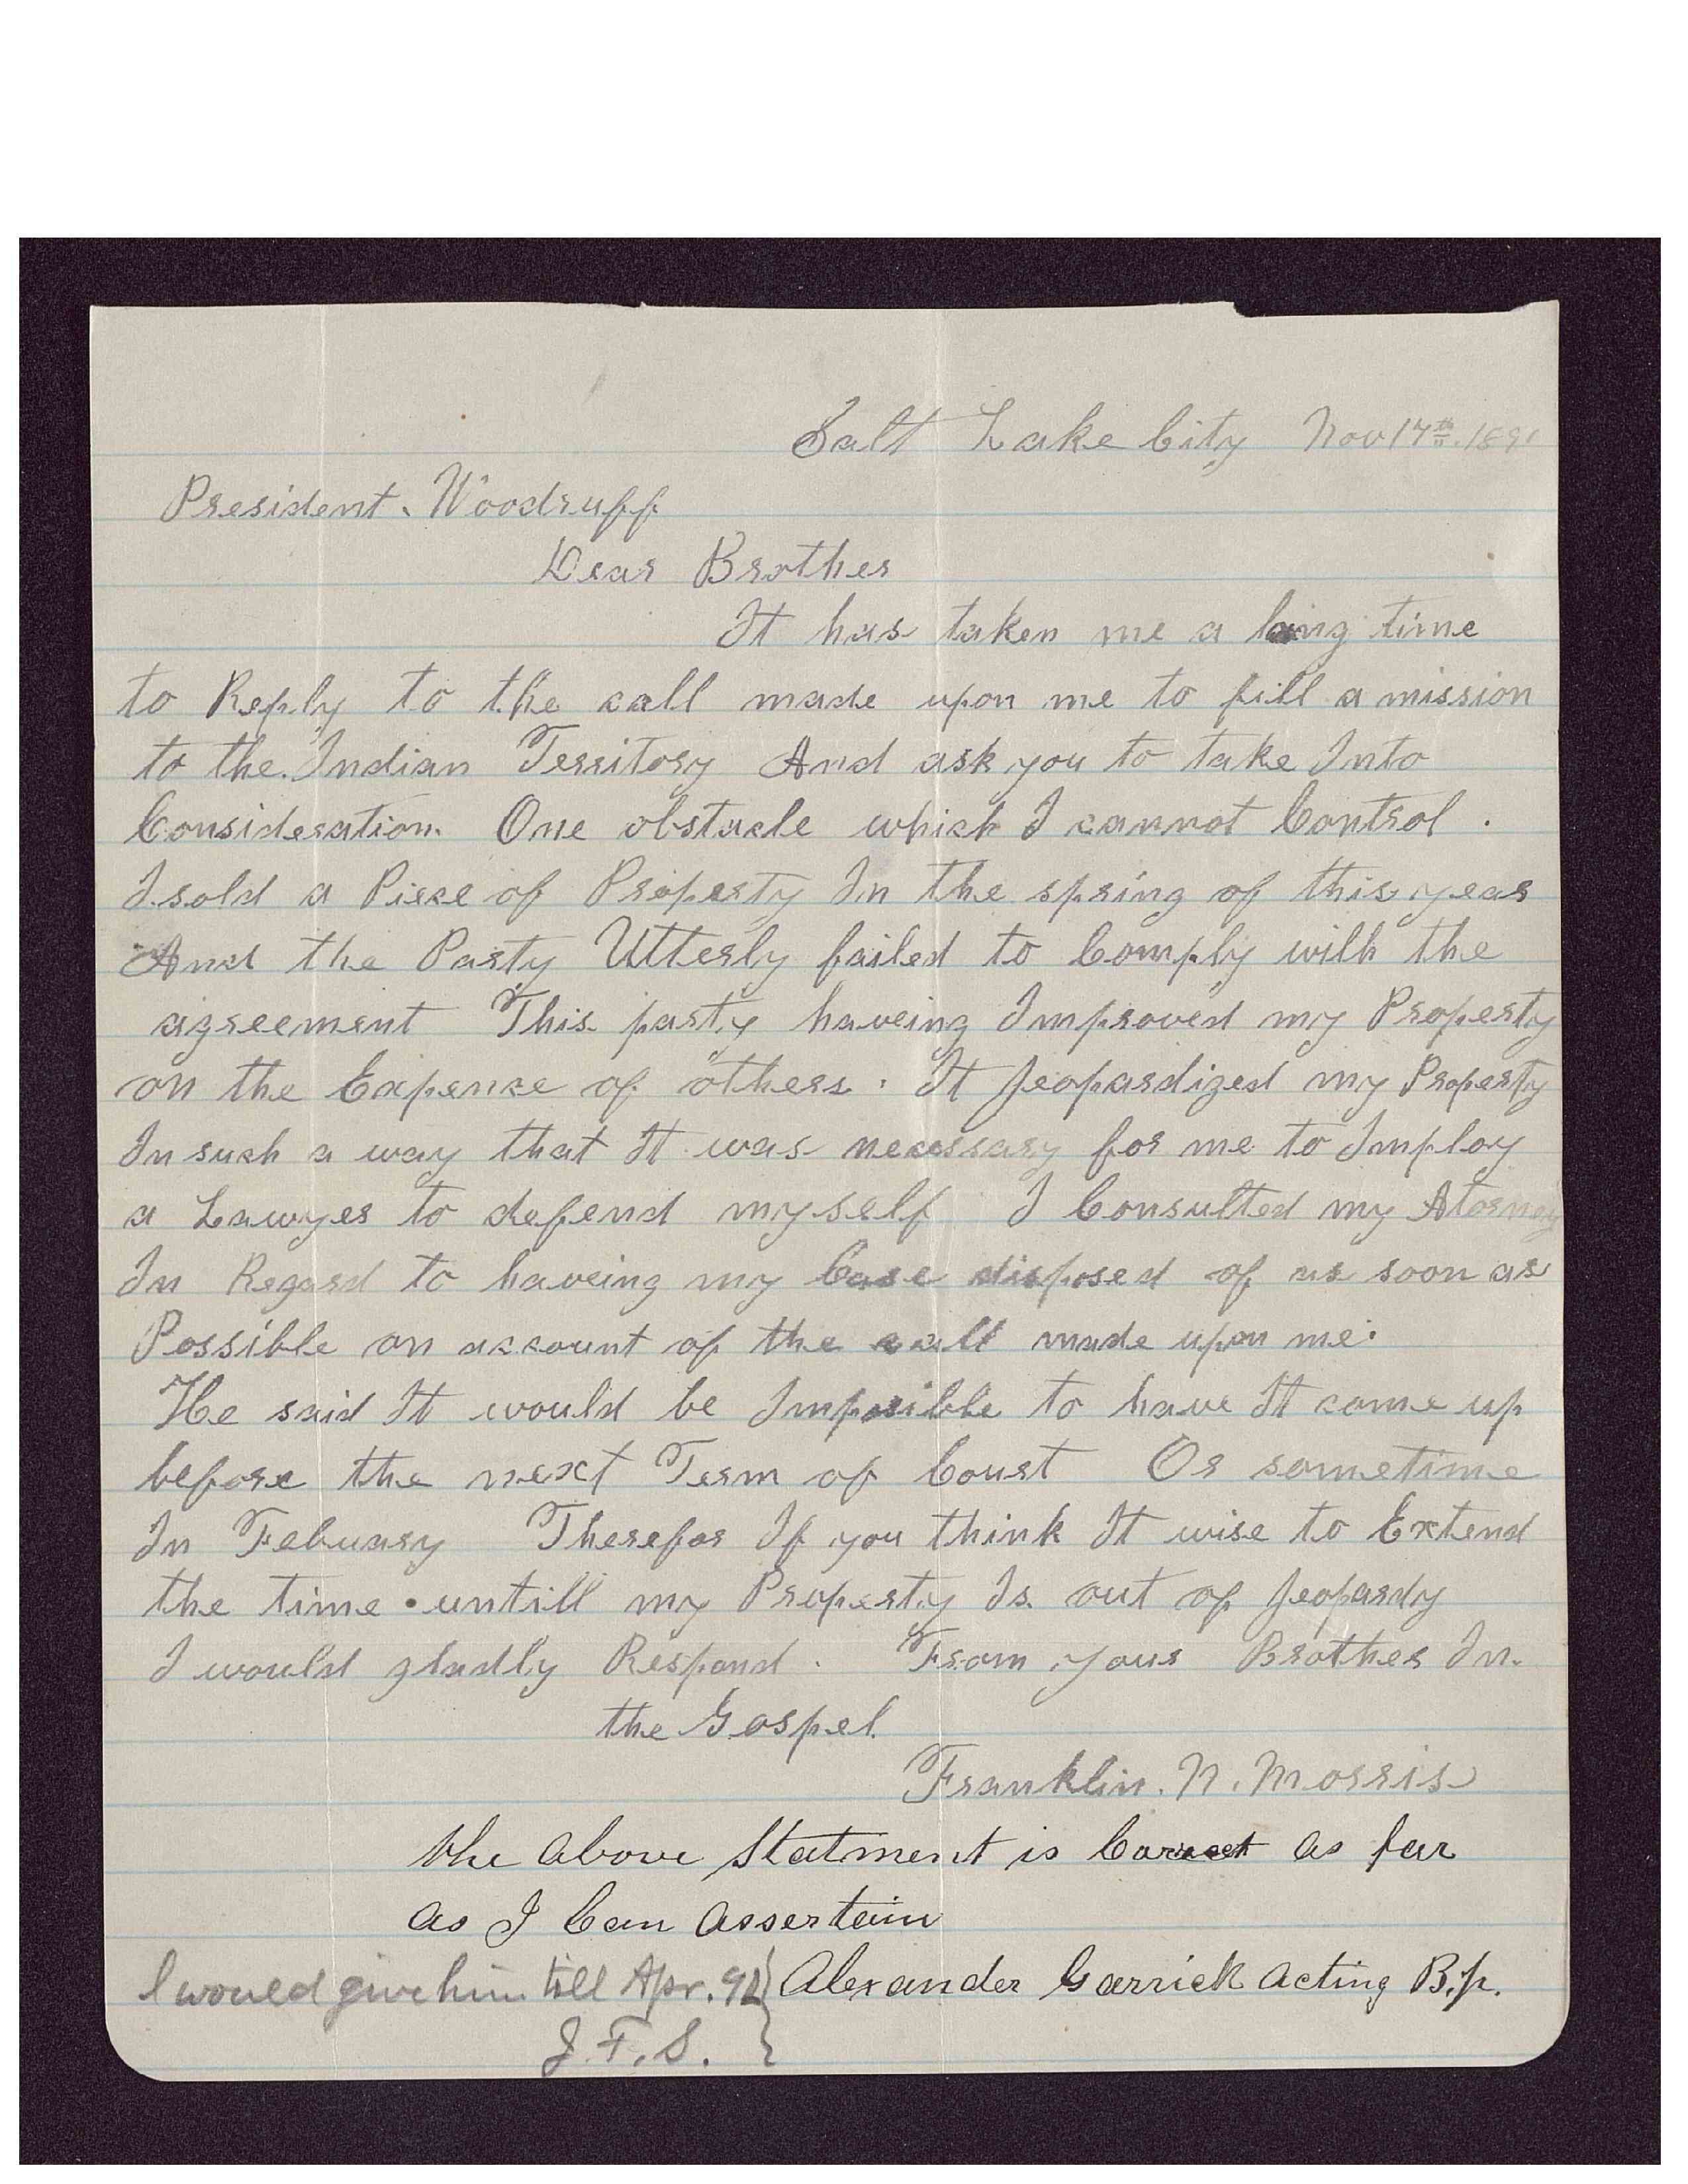 Salt Lake City Nov 14th. 1891
President. Woodruff
Dear Brother
It has taken me a long time
to Reply to the call made upon me to fill a mission
to the Indian Territory And ask you to take Into
Consideration. One obstacle which I cannot Control.
I sold a Piece of Property In the spring of this year
And the Party Utterly failed to Comply with the
agreement This party haveing Improved my Property
on the Expence of others. It Jeopardized my Property
In such a way that It was necessary for me to Imploy
a Lawyer to defend myself I Consulted my Atorney
In Regard to haveing my Case disposed of as soon as
Possible on account of the call made upon me.
He said It would be Imposible to have It come up
before the next Term of Court Or sometime
In Febuary Therefor If you think It wise to Extend
the time untill my Property Is out of Jeopardy
I would gladly Respond. From your Brother In.
the Gospel.
Franklin. N. Morris
the above Statment is Correct as far
as I Can assertain
Alexander Garrick acting B.p.
I would give him till Apr. 92 }
J. F. S.